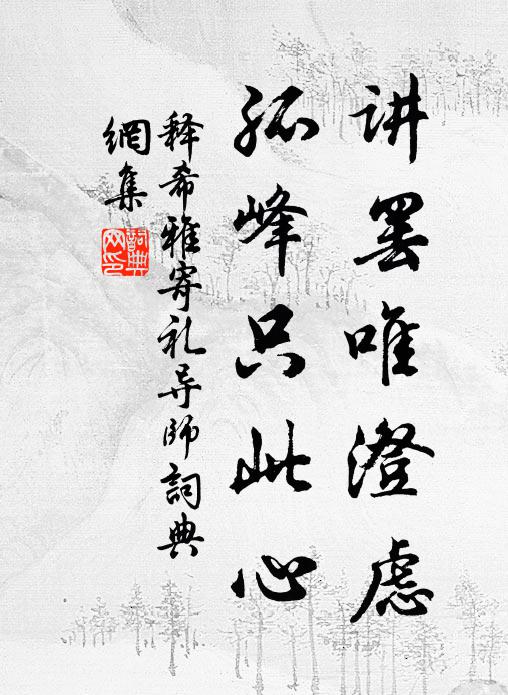 讲罢唯澄虑
孤峰只此心
释希雅寄礼导师詞典
網集
詞典
网印